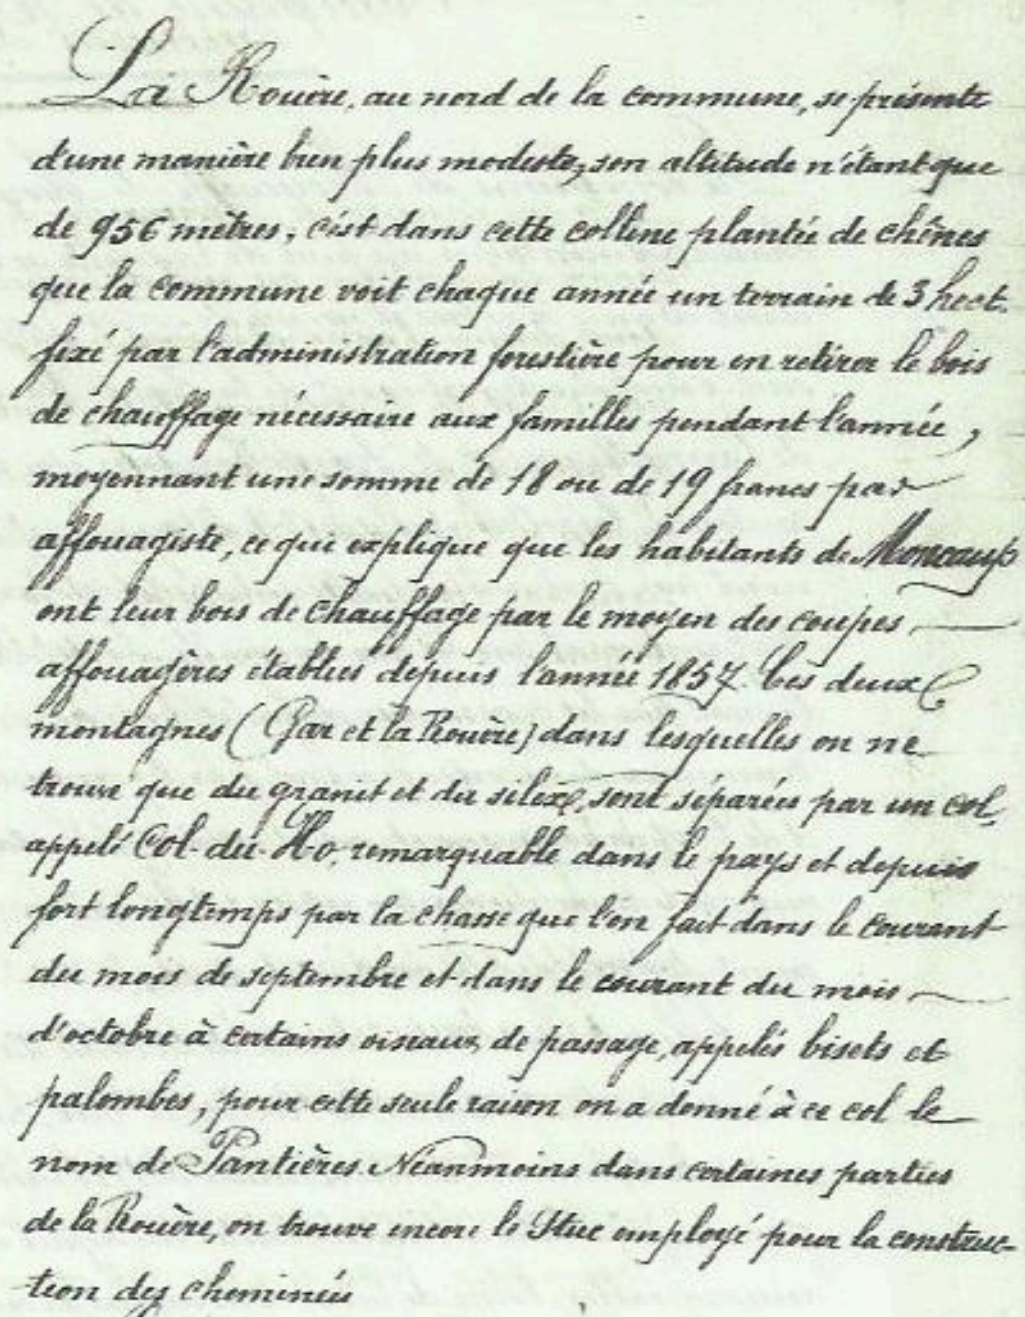 La Rouère, au nord de la commune, se présente
d'une manière bien plus modeste, son altitude n'étant que
de 956 mètres, c'est dans cette colline plantée de chênes
que la commune voit chaque année un terrain de 3 hect.
fixé par l'administration forestière pour en retirer le bois
de chauffage nécessaire aux familles pendant l'année,
moyennant une somme de 18 ou de 19 francs par
affouagiste, ce qui explique que les habitants de Moncaup
ont leur bois de chauffage par le moyen des coupes
affouagères établies depuis l'année 1857. Ces deux
montagnes (Gar et la Rouère) dans lesquelles on ne
trouve que du granit et du silex, sont séparées par un col,
appelé Col-du-Ho, remarquable dans le pays et depuis
fort longtemps par la chasse que l'on fait dans le courant
du mois de septembre et dans le courant du mois
d'octobre à certains oiseaux de passage, appelés bisets et
palombes, pour cette seule raison on a donné à ce col le
nom de Pantières. Néanmoins dans certaines parties
de la Rouère, on trouve encore le Stuc employé pour la construc-
-tion des cheminées